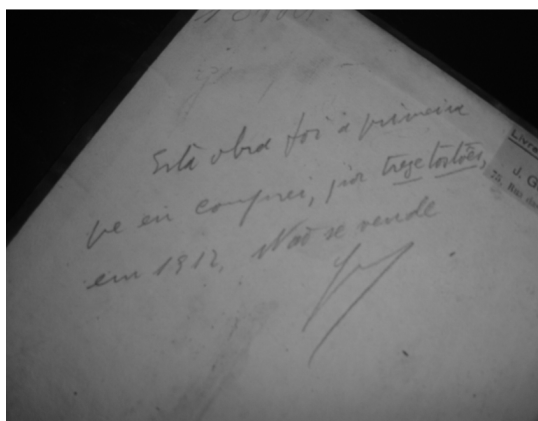 Esta obra foi a primeira
que eu comprei, por treze tostões,
em 1912. Não se vende
Livra
J. G
75, Rua da